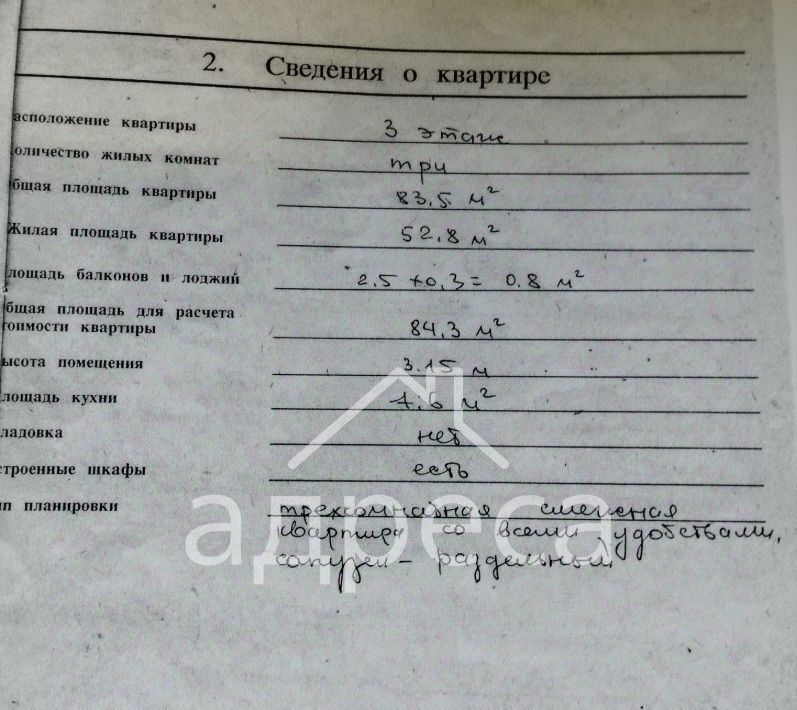 2. Сведения о квартире
асположение квартиры 3 этаж
оличество жилых комнат три
бщая площадь квартиры 83,5 м²
Жилая площадь квартиры 52,8 м²
лощадь балконов и лоджий 2.5 + 0,3 = 0.8 м²
бщая площадь для расчета
тоимости квартиры 84,3 м²
ысота помещения 3.15 м
лощадь кухни 7.6 м²
ладовка нет
строенные шкафы есть
ип планировки трехкомнатная смежная
квартира со всеми удобствами,
санузел – раздельный
адреса